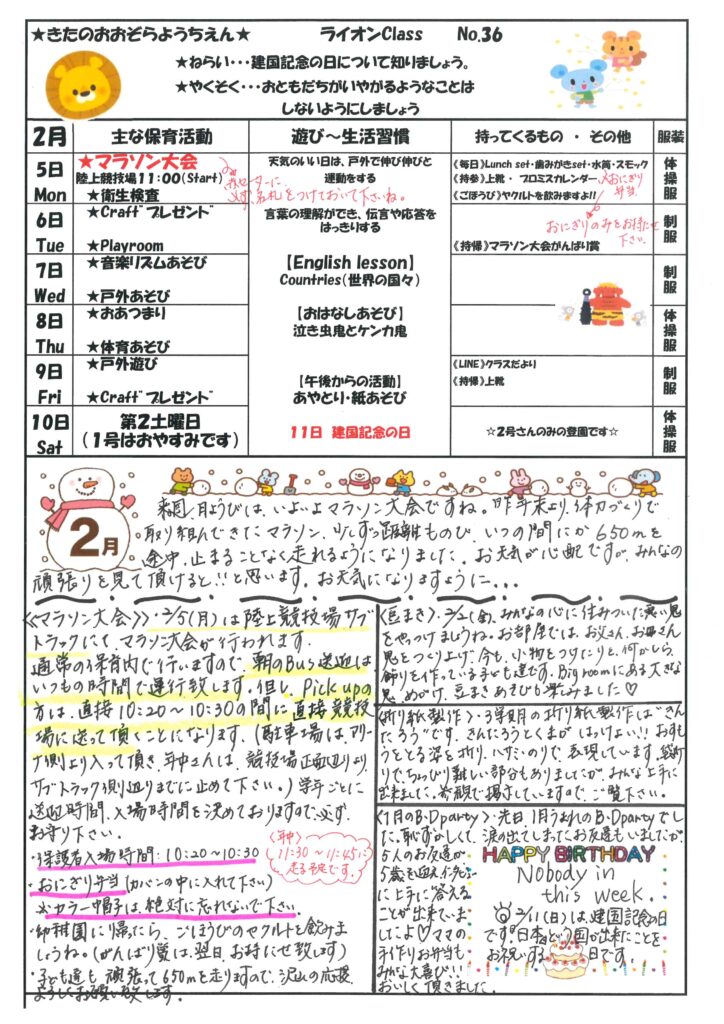 ★きたのおおぞらようちえん★ ライオンClass No.36
★ねらい・・・建国記念の日について知りましょう。
★やくそく・・・おともだちがいやがるようなことは
しないようにしましょう
2月 主な保育活動 遊び～生活習慣 持ってくるもの ・ その他 服装
5日 Mon
★マラソン大会
陸上競技場11:00(Start)
★衛生検査
名札をつけておいて下さいね。
天気のいい日は、戸外で伸び伸びと
運動をする
《毎日》Lunch set・歯みがきset・水筒・スモック
《持参》上靴・プロミスカレンダー ※おにぎり弁当。
《ごほうび》ヤクルトを飲みますよ!!
体操服
6日 Tue
★Craft"プレゼント"
★Playroom
言葉の理解ができ、伝言や応答を
はっきりする
おにぎりのみをお持たせ
下さい。
《持帰》マラソン大会がんばり賞
制服
7日 Wed
★音楽リズムあそび
★戸外あそび
【English lesson】
Countries(世界の国々)
制服
8日 Thu
★おあつまり
★体育あそび
【おはなしあそび】
泣き虫鬼とケンカ鬼
体操服
9日 Fri
★戸外遊び
★Craft"プレゼント"
【午後からの活動】
あやとり・紙あそび
《LINE》クラスだより
《持帰》上靴
制服
10日 Sat
第2土曜日
(1号はおやすみです)
11日 建国記念の日
☆2号さんのみの登園です☆
体操服
2月
来週、月ようびは、いよいよマラソン大会ですね。昨年末より、体力づくりで
取り組んできたマラソン、少しずつ距離ものび、いつの間にか650mを
途中、止まることなく走れるようになりました。お天気が心配ですが、みんなの
頑張りを見て頂けると!!と思います。お天気になりますように...
《マラソン大会》・2/5(月)は陸上競技場サブ
トラックにてマラソン大会が行われます。
通常の保育内で行いますので、朝のBus送迎は
いつもの時間で運行致します。但し、Pick upの
方は、直接10:20～10:30の間に直接競技
場に送って頂くことになります。(駐車場は、アリー
ナ側より入って頂き、年中さんは、競技場正面辺りより、
サブトラック側辺りまでに止めて下さい。)学年ごとに
送迎時間、入場時間を決めておりますので必ず、
お守り下さい。
・保護者入場時間:10:20～10:30
〈年中〉
11:30～11:45に
走る予定です。
・おにぎり弁当(カバンの中に入れて下さい)
※カラー帽子は、絶対に忘れないで下さい。
・幼稚園に帰ったら、ごほうびのヤクルトを飲みま
しょうね。(がんばり賞は、翌日、お持たせ致します)
・子ども達も頑張って650mを走りますので、沢山の応援、
よろしくお願い致します。
〈豆まき〉・2/2(金)、みんなの心に住みついた悪い鬼
をやっつけましょうね。お部屋では、お父さん、お母さん
鬼をつくり上げ、今も、小物をつけたりと、何かしら、
飾りを作っている子ども達です。Big roomにある大きな
鬼めがけ、豆まきあそびも楽しみました♡
〈折り紙製作〉・3学期の折り紙製作は"きん
たろう"です。きんたろうとくまが はっけよい!! おすも
うをとる姿を折り、ハサミ・のりで、表現しています。袋折
りで、ちょっぴり難しい部分もありましたが、みんな上手に
出来ました。参観で掲示していますので、ご覧下さい。
〈1月のB・D party〉・先日、1月うまれのB・D partyでし
た。恥ずかしくて、涙の出てしまったお友達もいましたが、
5人のお友達が
5歳を迎え、インタビュー
に上手に答える
ことが出来ていま
したよ♡ママの
手作りお弁当も
みんな大喜び!!
おいしく頂きました。
HAPPY BIRTHDAY
Nobody in
this week.
◎2/11(日)は、建国記念の日
です。日本という国が出来たことを
お祝いする日です。